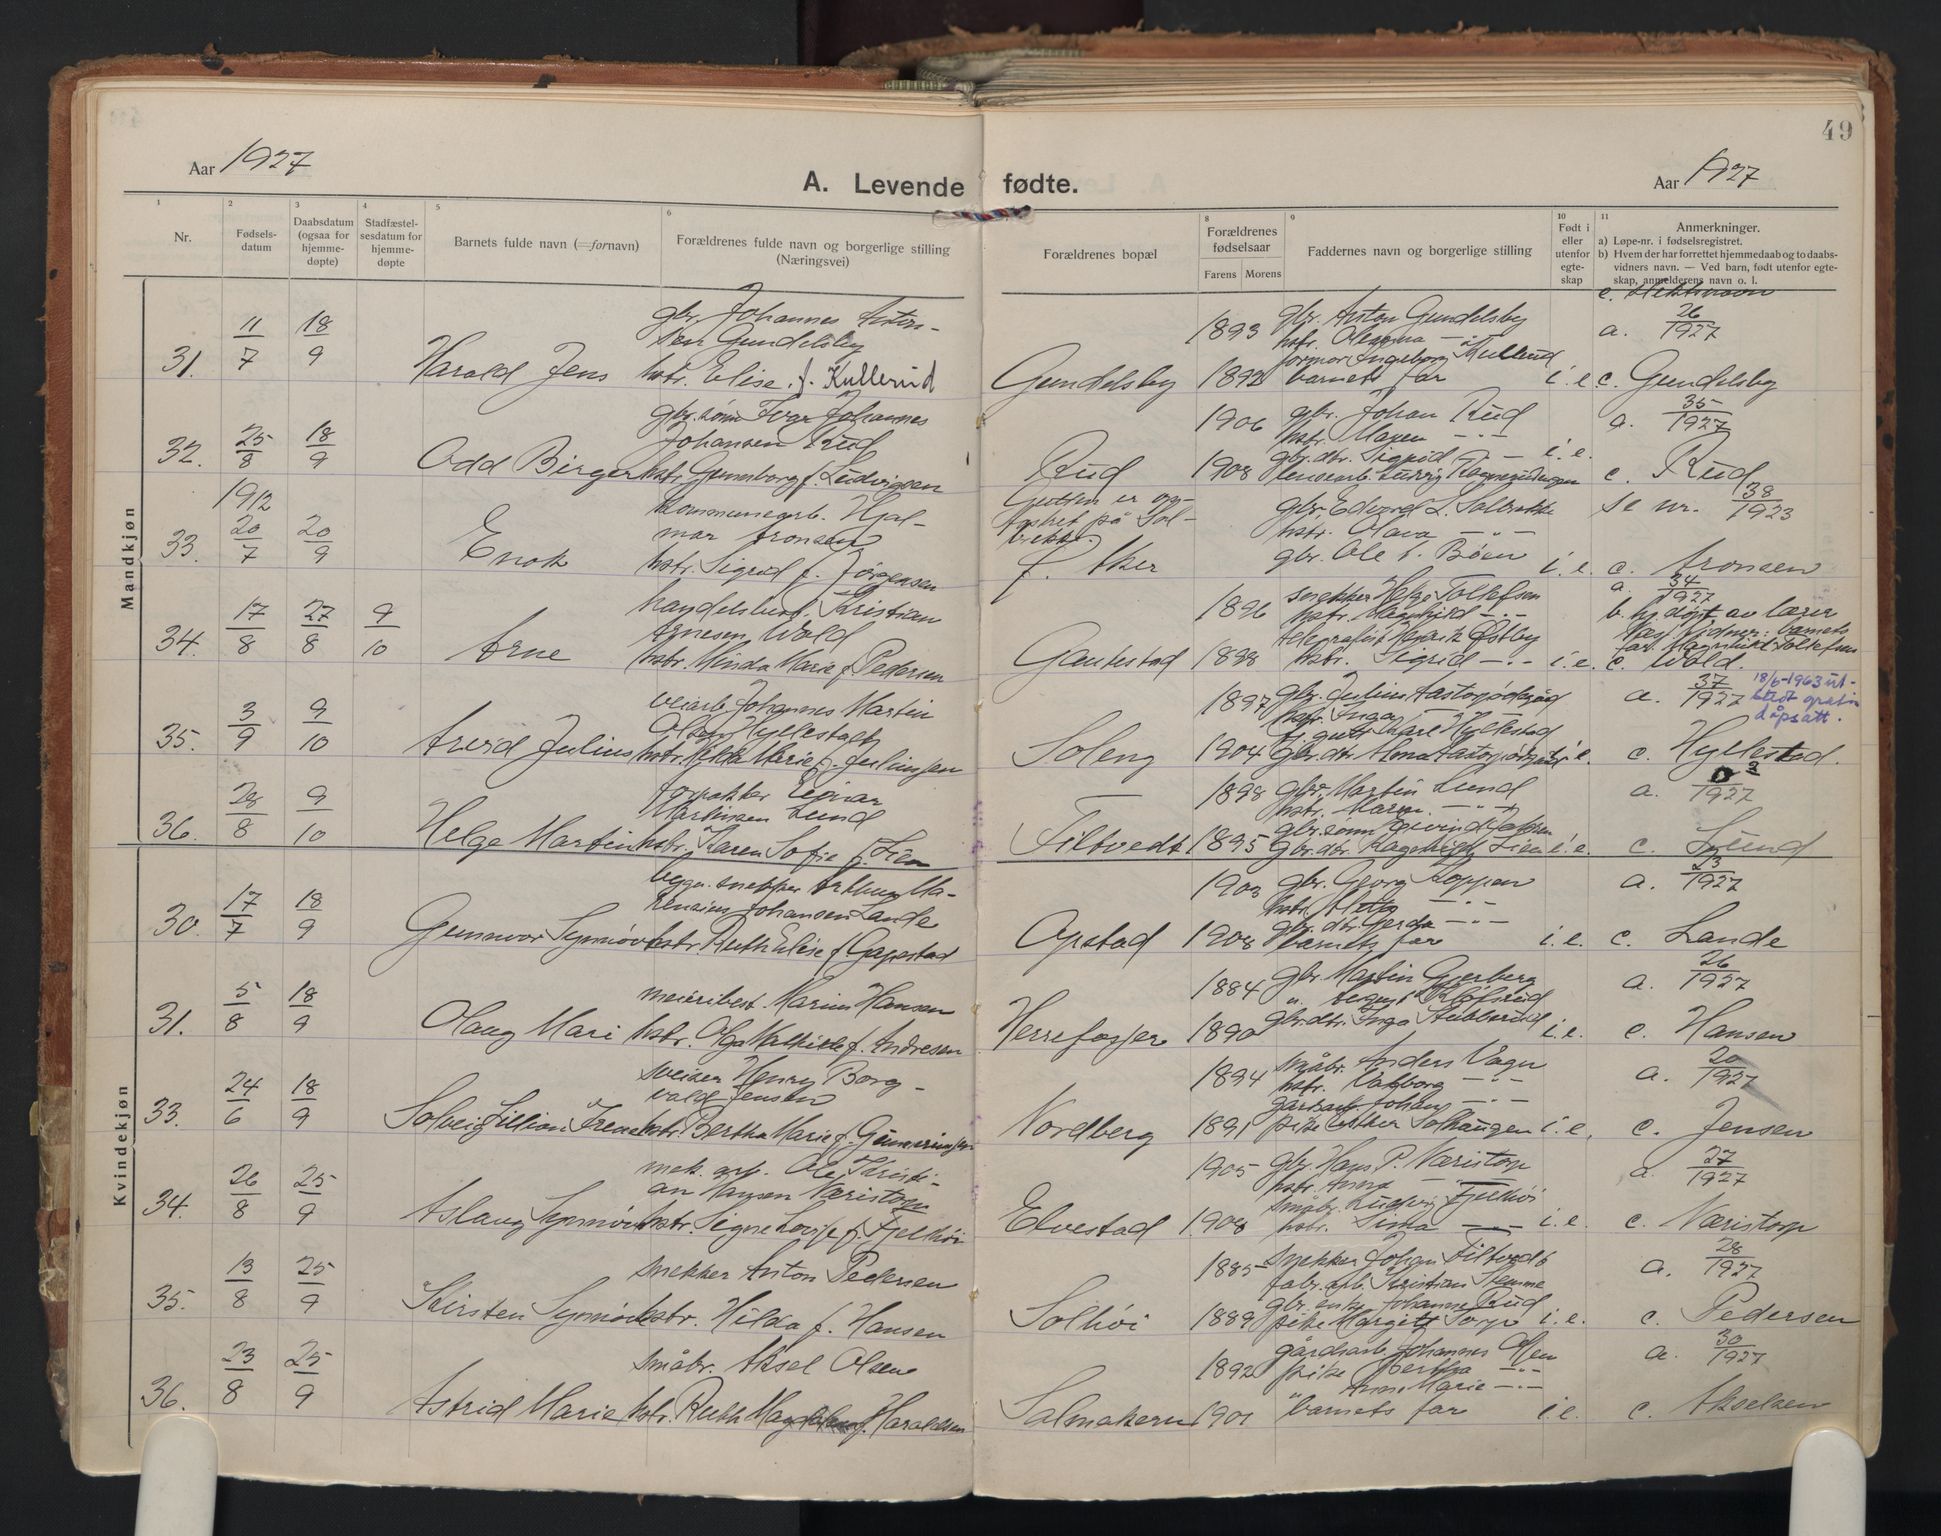 49
Aar 1927
A. Levende fødte.
Aar 1927
1 2 3 4 5 6 8 9 10 11
Nr.
Fødsels-
datum
Daabsdatum
(ogsaa for
hjemme-
døpte)
Stadfæstel-
sesdatum for
hjemme-
døpte
Barnets fulde navn (fornavn)
Forældrenes fulde navn og borgerlige stilling
(Næringsvei)
Forældrenes bopæl
Forældrenes
fødselsaar
Farens Morens
Faddernes navn og borgerlige stilling
Født i
eller
utenfor
egte-
skap
Anmerkninger.
a) Løpe-nr. i fødselsregistret.
b) Hvem der har forrettet hjemmedaab og to daabs-
vidners navn. — Ved barn, født utenfor egte-
skap, anmelderens navn o. l.
c. Slektsnavn
Mandkjøn
31. 11/7 18/9 Harald Jens
gbr. Johannes Anton-
sen Gundelsby
hstr. Elise f. Kullerud
Gundelsby 1893 1892
gbr. Anton Gundelsby
hstr. Olegina -"-
formor Ingeborg Kullerud
barnets far
i. e.
a. 26/1927
c. Gundelsby
32. 25/8 18/9 Odd Birger
gbr. sønn Johannes
Johansen Rud
hstr. Gunnborg f. Ludvigsen
Rud 1906 1908
gbr. Johan Rud
hstr. Maren -"-
gbr. dtr. Sigrid -"-
i. e.
a. 35/1927
c. Rud
33. 1912 20/7 20/9 Enok
kommunearb. Hjal-
mar Aronsen
hstr. Sigrid f. Jørgensen
Gutten er opp-
fostret på Sol-
brekke
f. Aker
gbr. Edvard L. Solbrekke
hstr. Olava -"-
gbr. Ole Bøen
i. e.
se nr. 38/1923
c. Aronsen
34. 17/8 27/8 9/10 Arne
handelsbest. Kristian
Arnesen Wold
hstr. Minda Marie f. Pedersen
Gautestad 1896 1898
snekker Helge Tollefsen
hstr. Magnhild -"-
telegrafist Henrik Østby
hstr. Sigrid -"-
i. e.
a. 34/1927
b. hj. døpt av lærer
far, Magnhild Tollefsen
c. Wold.
35. 3/9 9/10 Arvid Julius
veiarb. Johannes Martin
Olsen Hyllestad
hstr. Hilda Marie f. Juliussen
Soleng 1897 1904
gbr. Julius
hstr. Inga
gutt Kåre Hyllestad
gbr. dtr. Alma
i. e.
a. 37/1927
18/6-1963 ut-
stedt gratis
dåpsatt.
c. Hyllestad.
36. 28/8 9/10 Helge Martin
forpakter Einar
Martinsen Lund
hstr. Karen Sofie f. Lien
Filtvedt 1898 1895
gbr. Martin Lund
hstr. Maren -"-
gbr. dtr. Ragnhild Lien
i. e.
a. 1927
c. Lund
Kvindekjøn
30. 17/7 18/9 Gunnvor Synnøve
bygn. snekker Arthur Ma-
rensius Johansen Lande
hstr. Ruth Elise f. Gapestad
Opstad 1903 1908
gbr. Georg Koppen
hstr. -"-
gbr. dtr. Gerda -"-
barnets far
i. e.
a. 23/1927
c. Lande
31. 5/8 18/9 Olaug Mari
meieribest. Marius Hansen
hstr. Olga Mathilde f. Andresen
Herrefosser 1884 1890
gbr. Martin Gjerberg
gbr. dtr. Inga Stubberud
i. e.
a. 26/1927
c. Hansen
33. 24/6 18/9 Solveig Lillian Irene
sveiser Henry Borg-
vald Jensen
hstr. Bertha Marie f. Gunneriussen
Nordberg 1894 1891
småbr. Anders Vagn
hstr. Valborg -"-
gårdsarb. Johan -"-
pike Esther Solhaugen
i. e.
a. 20/1927
c. Jensen
34. 26/8 25/9 Aslaug Synnøve
mek. arb. Ole Kristi-
an Hansen Næristorp
hstr. Signe Lovise f. Fjelhøi
Elvestad 1905 1908
gbr. Hans P. Næristorp
hstr. Anna -"-
småbr. Ludvig Fjelhøi
hstr. Sina -"-
i. e.
a. 27/1927
c. Næristorp
35. 13/8 25/9 Kirsten Synnøve
snekker Anton Pedersen
hstr. Hilda f. Hansen
Solhøi 1885 1889
snekker Johan Filtvedt
fabr. arb. Kristian Stemme
gbr. enke Johanne Rud
pike Margit Torp
i. e.
a. 28/1927
c. Pedersen
36. 23/8 25/9 Astrid Marie
småbr. Aksel Olsen
hstr. Ruth Magdalena f. Haraldsen
Salmakern 1892 1901
gårdsarb. Johannes Olsen
pike Bertha -"-
" Anne Marie -"-
barnets far
i. e.
a. 30/1927
c. Akselsen